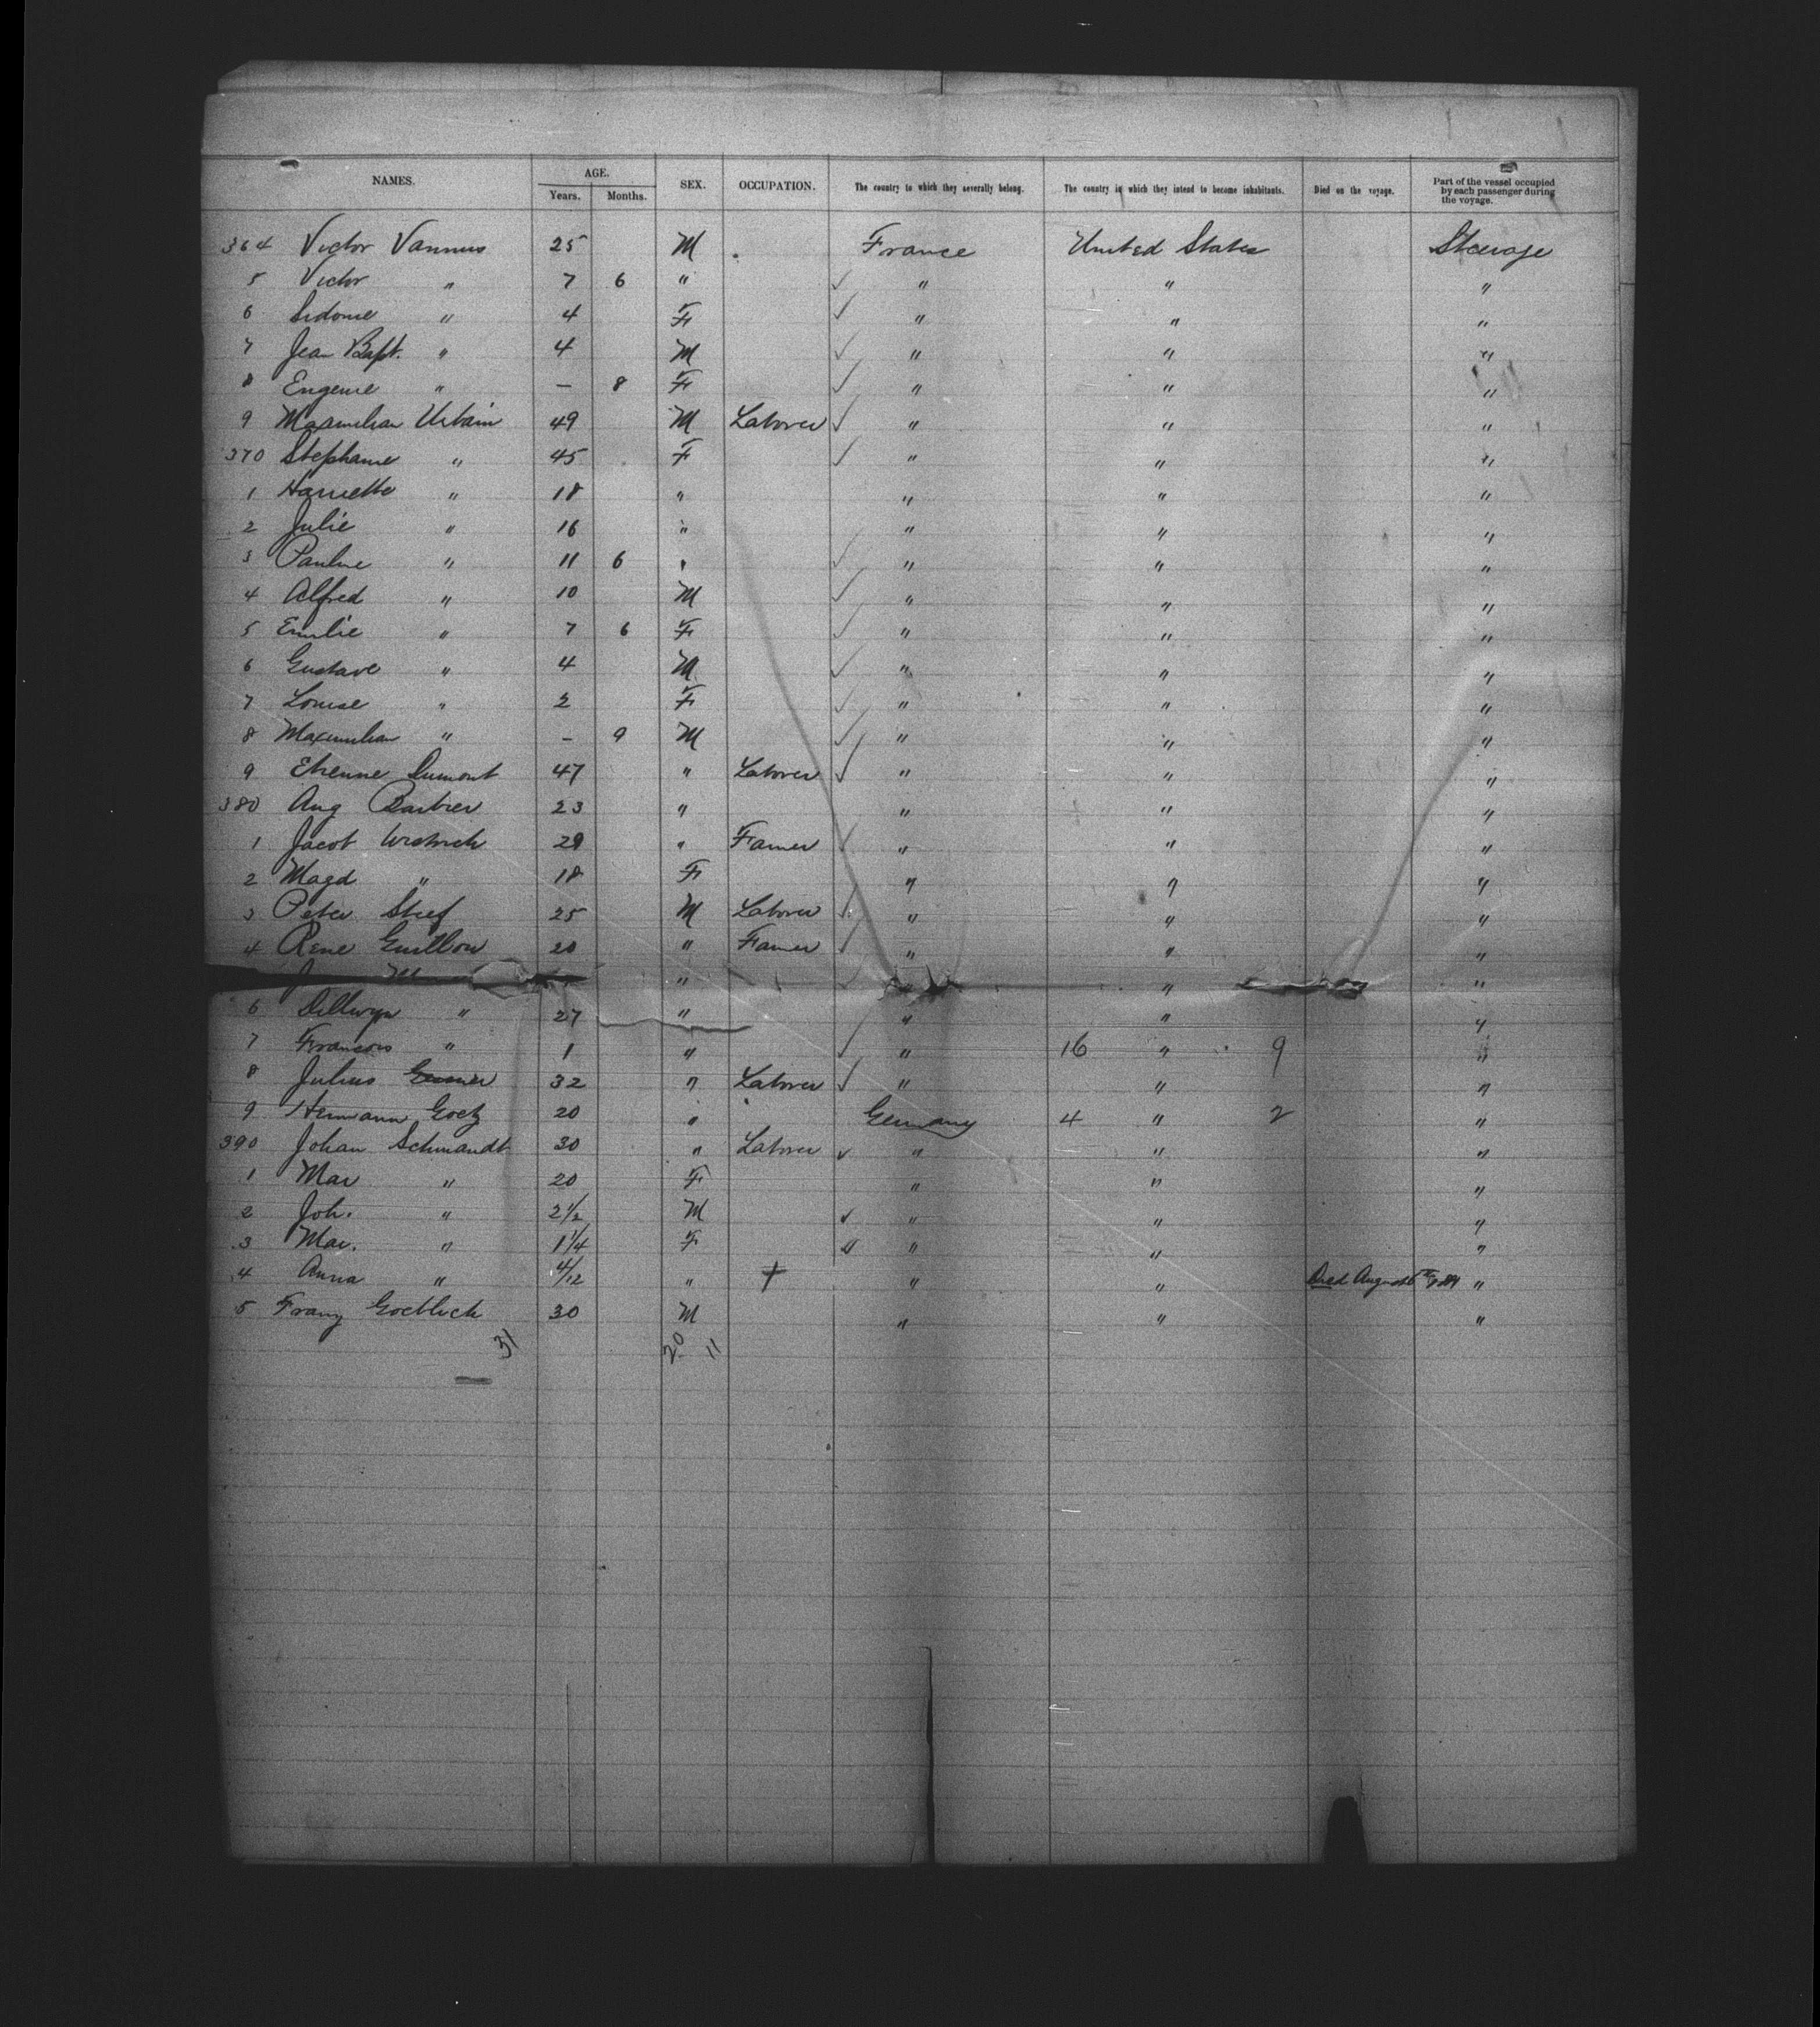 NAMES. AGE. SEX. OCCUPATION. The country to which they severally belong. The country in which they intend to become inhabitants. Died on the voyage. Part of the vessel occupied by each passenger during the voyage.
Years. Months.
364 Victor Vannus 25 M France United States Steerage
5 Victor " 7 6 " " " "
6 Sidonie " 4 F " " "
7 Jean Bapt. " 4 M " " "
8 Eugenie " — 8 F " " "
9 Maximilian Urbain 49 M Laborer " " "
370 Stephanie " 45 F " " "
1 Harriette " 18 " " " "
2 Julie " 16 " " " "
3 Pauline " 11 6 " " " "
4 Alfred " 10 M " " "
5 Emilie " 7 6 F " " "
6 Gustave " 4 M " " "
7 Louise " 2 F " " "
8 Maximilian " — 9 M " " "
9 Etienne Dumont 47 " Laborer " " "
380 Aug Barbier 23 " " " "
1 Jacob 29 " Farmer " " "
2 Magd " 18 F " " "
3 Peter Steef 25 M Laborer " " "
4 Rene Guillou 20 " Farmer " " "
" " " "
6 Dillwyn " 27 " " " "
7 Francois " 1 " " 16 " 9 "
8 Julius 32 " Laborer " " "
9 Hermann Goetz 20 " Germany 4 " 2 "
390 Johan Schmandt 30 " Laborer " " "
1 Mar " 20 F " " "
2 Joh. " 2 1/2 M " " "
3 Mar. " 1 1/4 F " " "
4 Anna " 4/12 " † " " Died August "
5 Franz Goetlich 30 M " " "
31 20 11